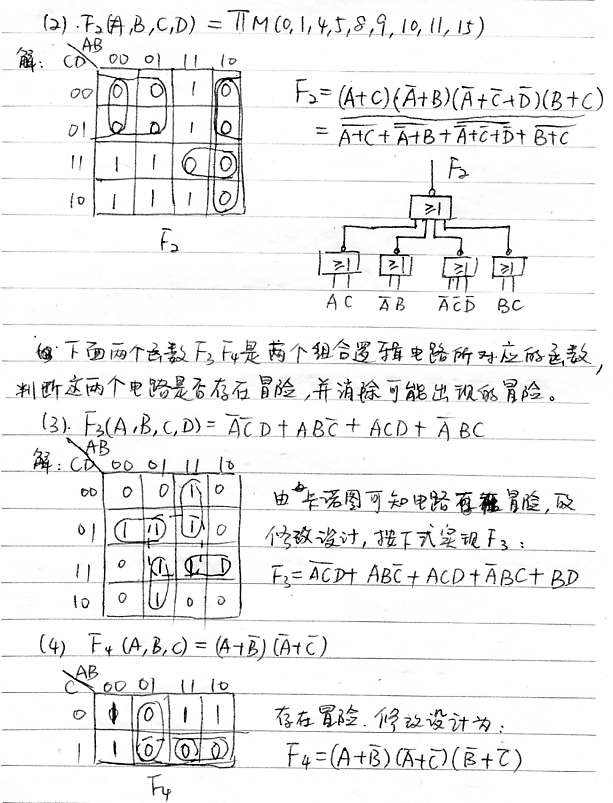 (2). F₂(A,B,C,D) = ΠM(0,1,4,5,8,9,10,11,15)
解: CD AB 00 01 11 10
00 0 0 1 0
01 0 0 1 0
11 1 1 0 0
10 1 1 1 0
F₂
F₂=(A+C)(A̅+B)(A̅+C̅+D̅)(B+C)
= \overline{\overline{A+C}+\overline{A̅+B}+\overline{A̅+C̅+D̅}+\overline{B+C}}
F₂
≥1
≥1 ≥1 ≥1 ≥1
A C A̅ B A̅ C̅ D̅ B C
下面两个函数F₃ F₄是两个组合逻辑电路所对应的函数,
判断这两个电路是否存在冒险,并消除可能出现的冒险。
(3). F₃(A,B,C,D)= A̅C̅D+ABC̅+ACD+A̅BC
解: CD AB 00 01 11 10
00 0 0 1 0
01 1 1 1 0
11 0 1 1 1
10 0 1 0 0
由卡诺图可知电路存在冒险,
修改设计,按下式实现F₃:
F₃=A̅C̅D+ABC̅+ACD+A̅BC+BD
(4) F₄(A,B,C)=(A+B̅)(A̅+C̅)
C AB 00 01 11 10
0 1 0 1 1
1 1 0 0 0
F₄
存在冒险.修改设计为:
F₄=(A+B̅)(A̅+C̅)(B̅+C̅)